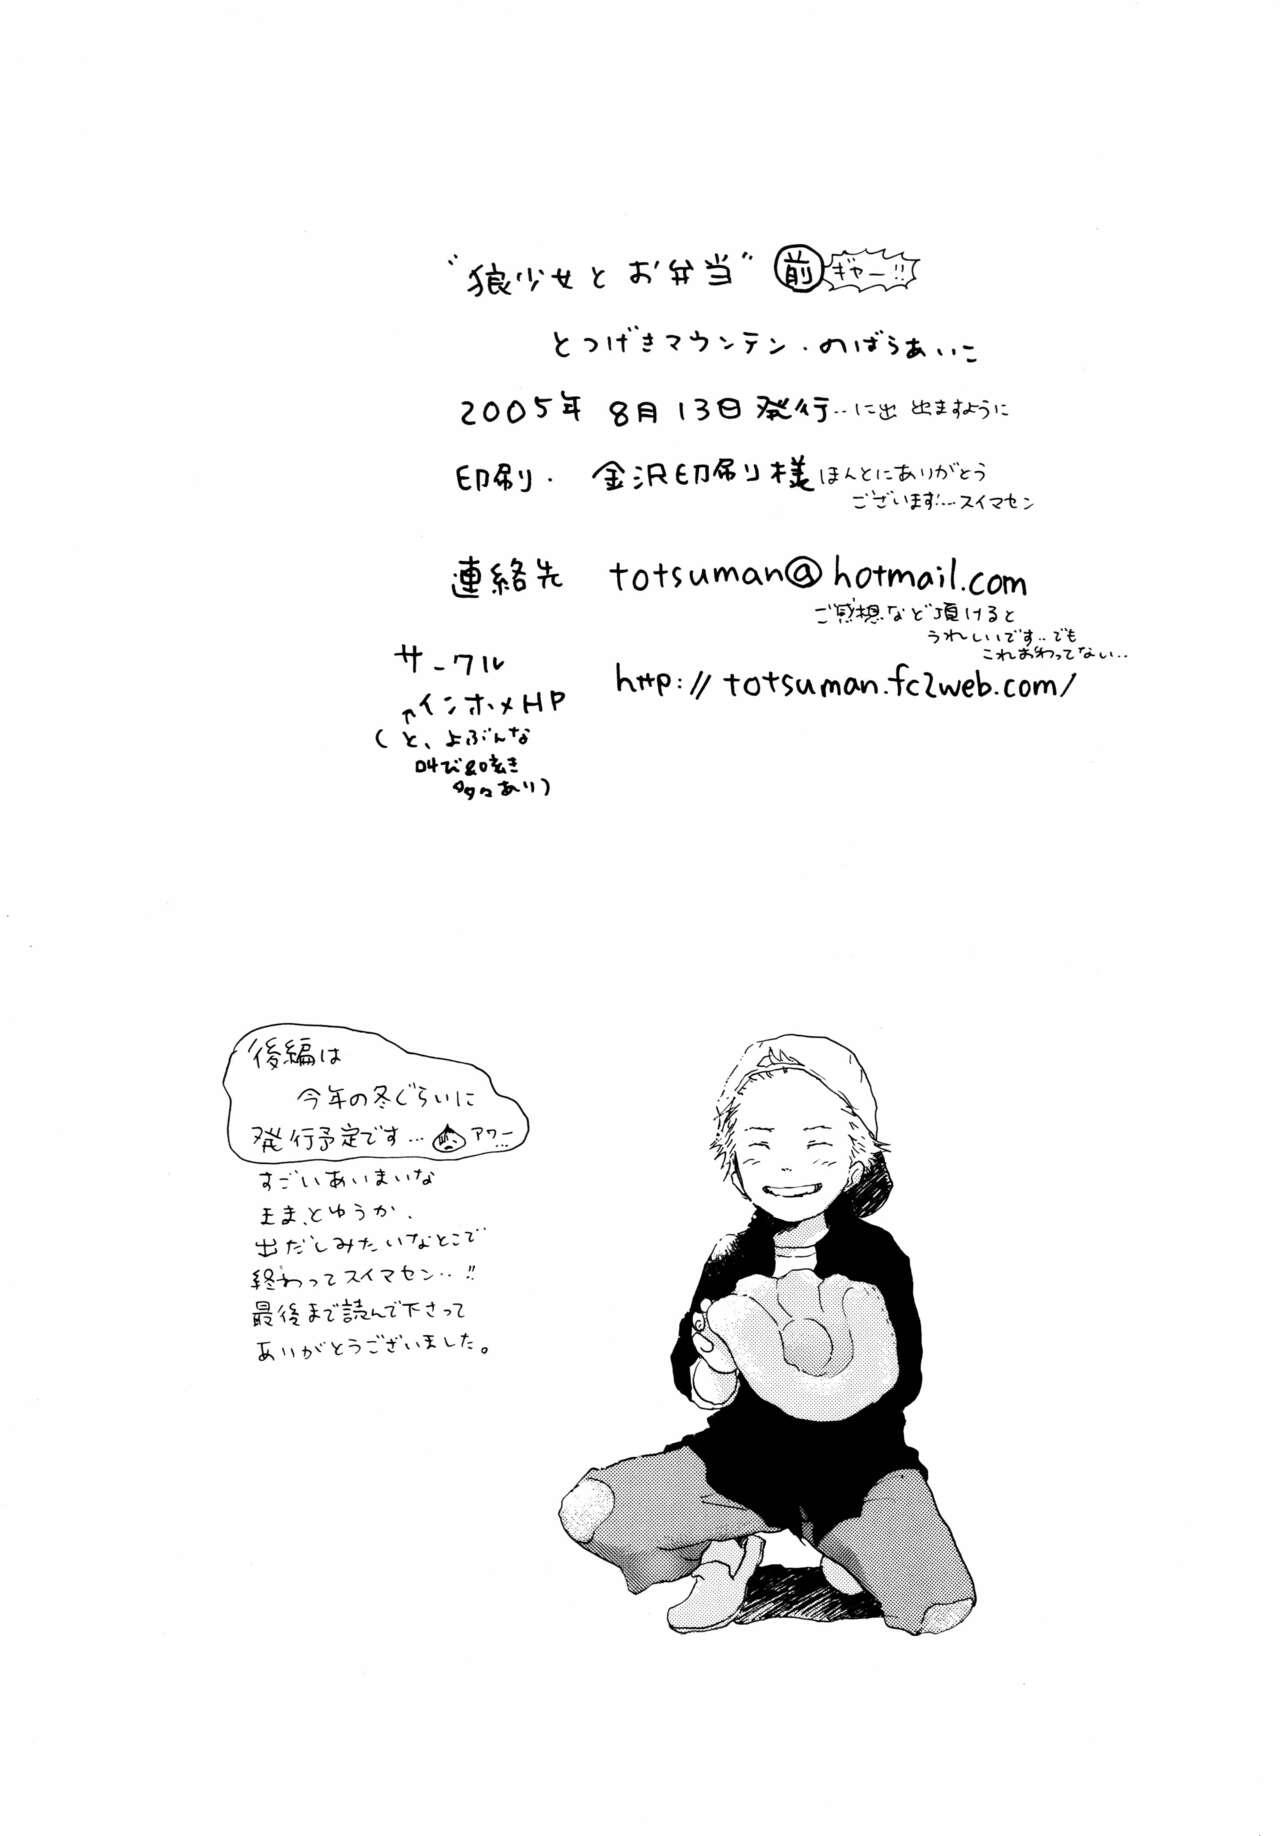 "狼少女とお弁当" 前 ギャー!!
とつげきマウンテン・のばらあいこ
2005年 8月13日発行‥に出 出ますように
印刷・ 金沢印刷様 ほんとにありがとう
ございます!…スイマセン
連絡先 totsuman@hotmail.com
ご感想など頂けると
うれしいです‥でも
これおわってない‥
サークル
↑インホメHP http://totsuman.fc2web.com/
(と、よぶんな
叫び&呟き
多々あり)
後編は
今年の冬ぐらいに
発行予定です… アワー…
すごいあいまいな
まま、とゆうか、
出だしみたいなとこで
終わってスイマセン‥!!
最後まで読んで下さって
ありがとうございました。